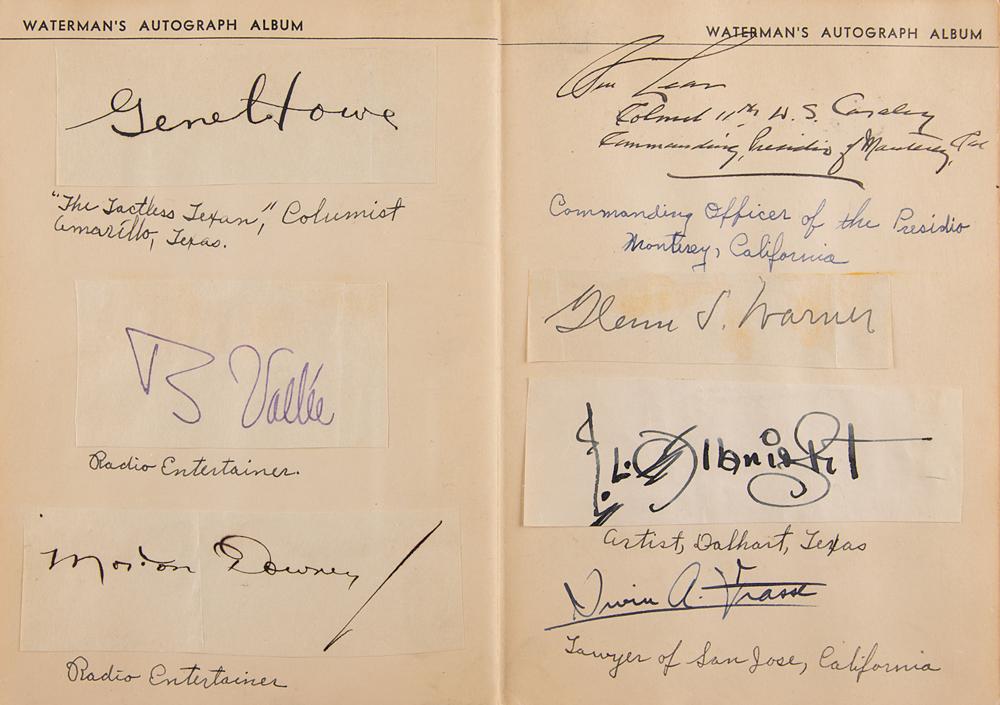 WATERMAN'S AUTOGRAPH ALBUM
Gene Howe
"The Tactless Texan," Columist
Amarillo, Texas.
R Vallée
Radio Entertainer.
Morton Downey
Radio Entertainer
WATERMAN'S AUTOGRAPH ALBUM
Ben Lear
Colonel 11th U. S. Cavalry
Commanding, Presidio of Monterey, Cal
Commanding Officer of the Presidio
Monterey, California
Glenn S. Warner
Artist, Dalhart, Texas
A.
Lawyer of San Jose, California